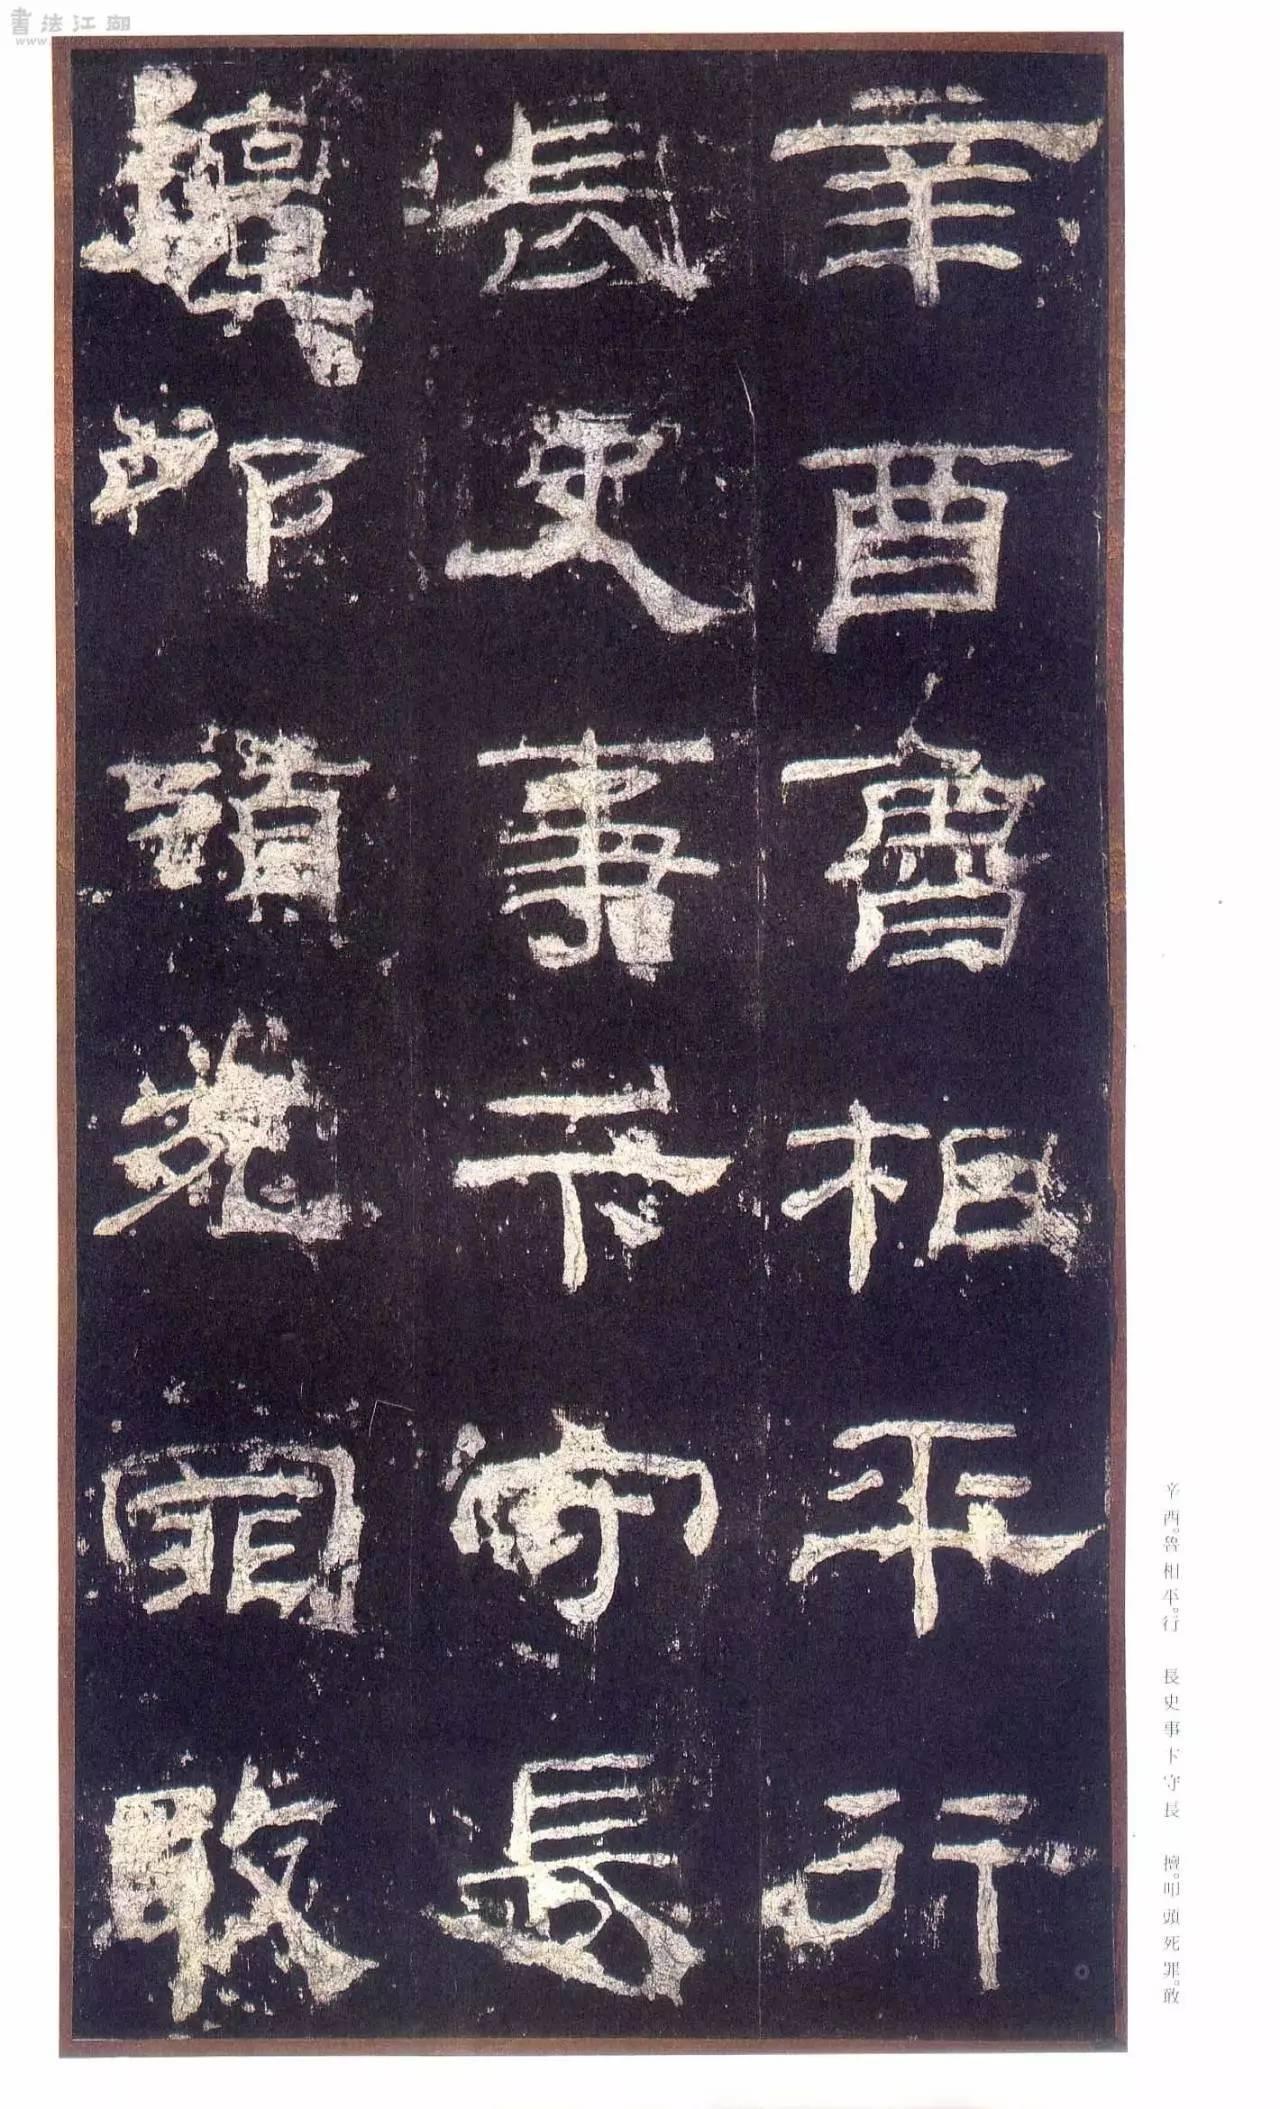 辛酉魯相平行
長史事卞守長
擅叩頭死罪敢
辛酉。魯相平。行　長史事卞守長　擅。叩頭死罪。敢
書法江湖